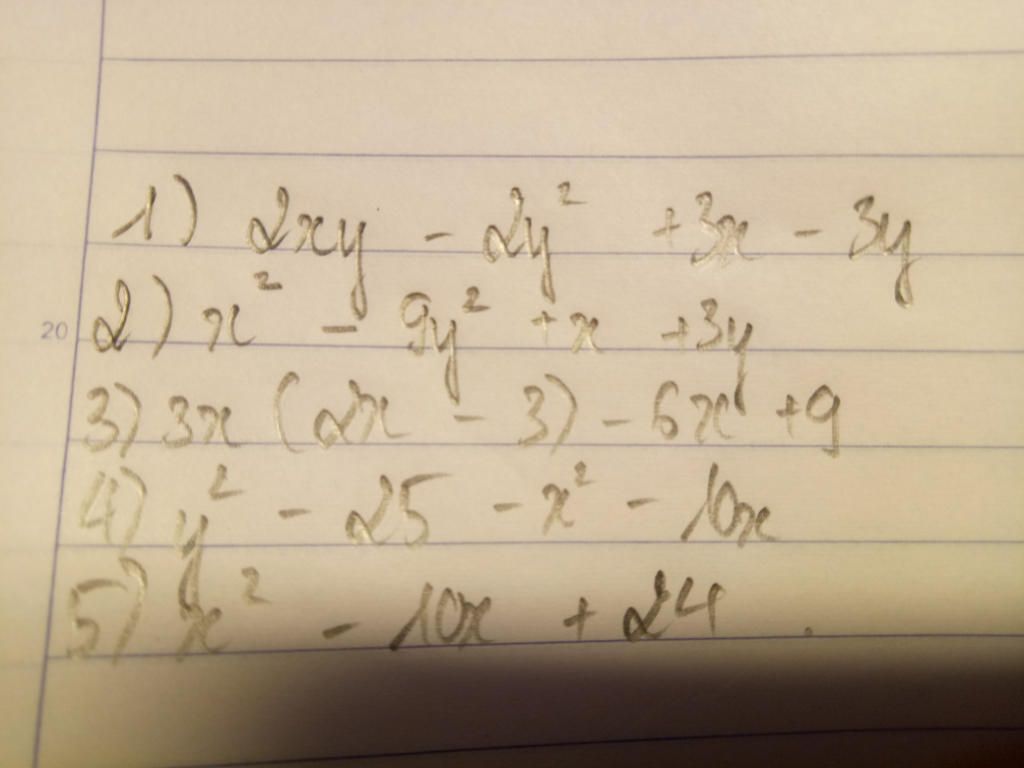 1) 2xy - 2y² + 3x - 3y
20
2) x² - 9y² + x + 3y
3) 3x (2x - 3) - 6x + 9
4) y² - 25 - x² - 10x
5) x² - 10x + 24.